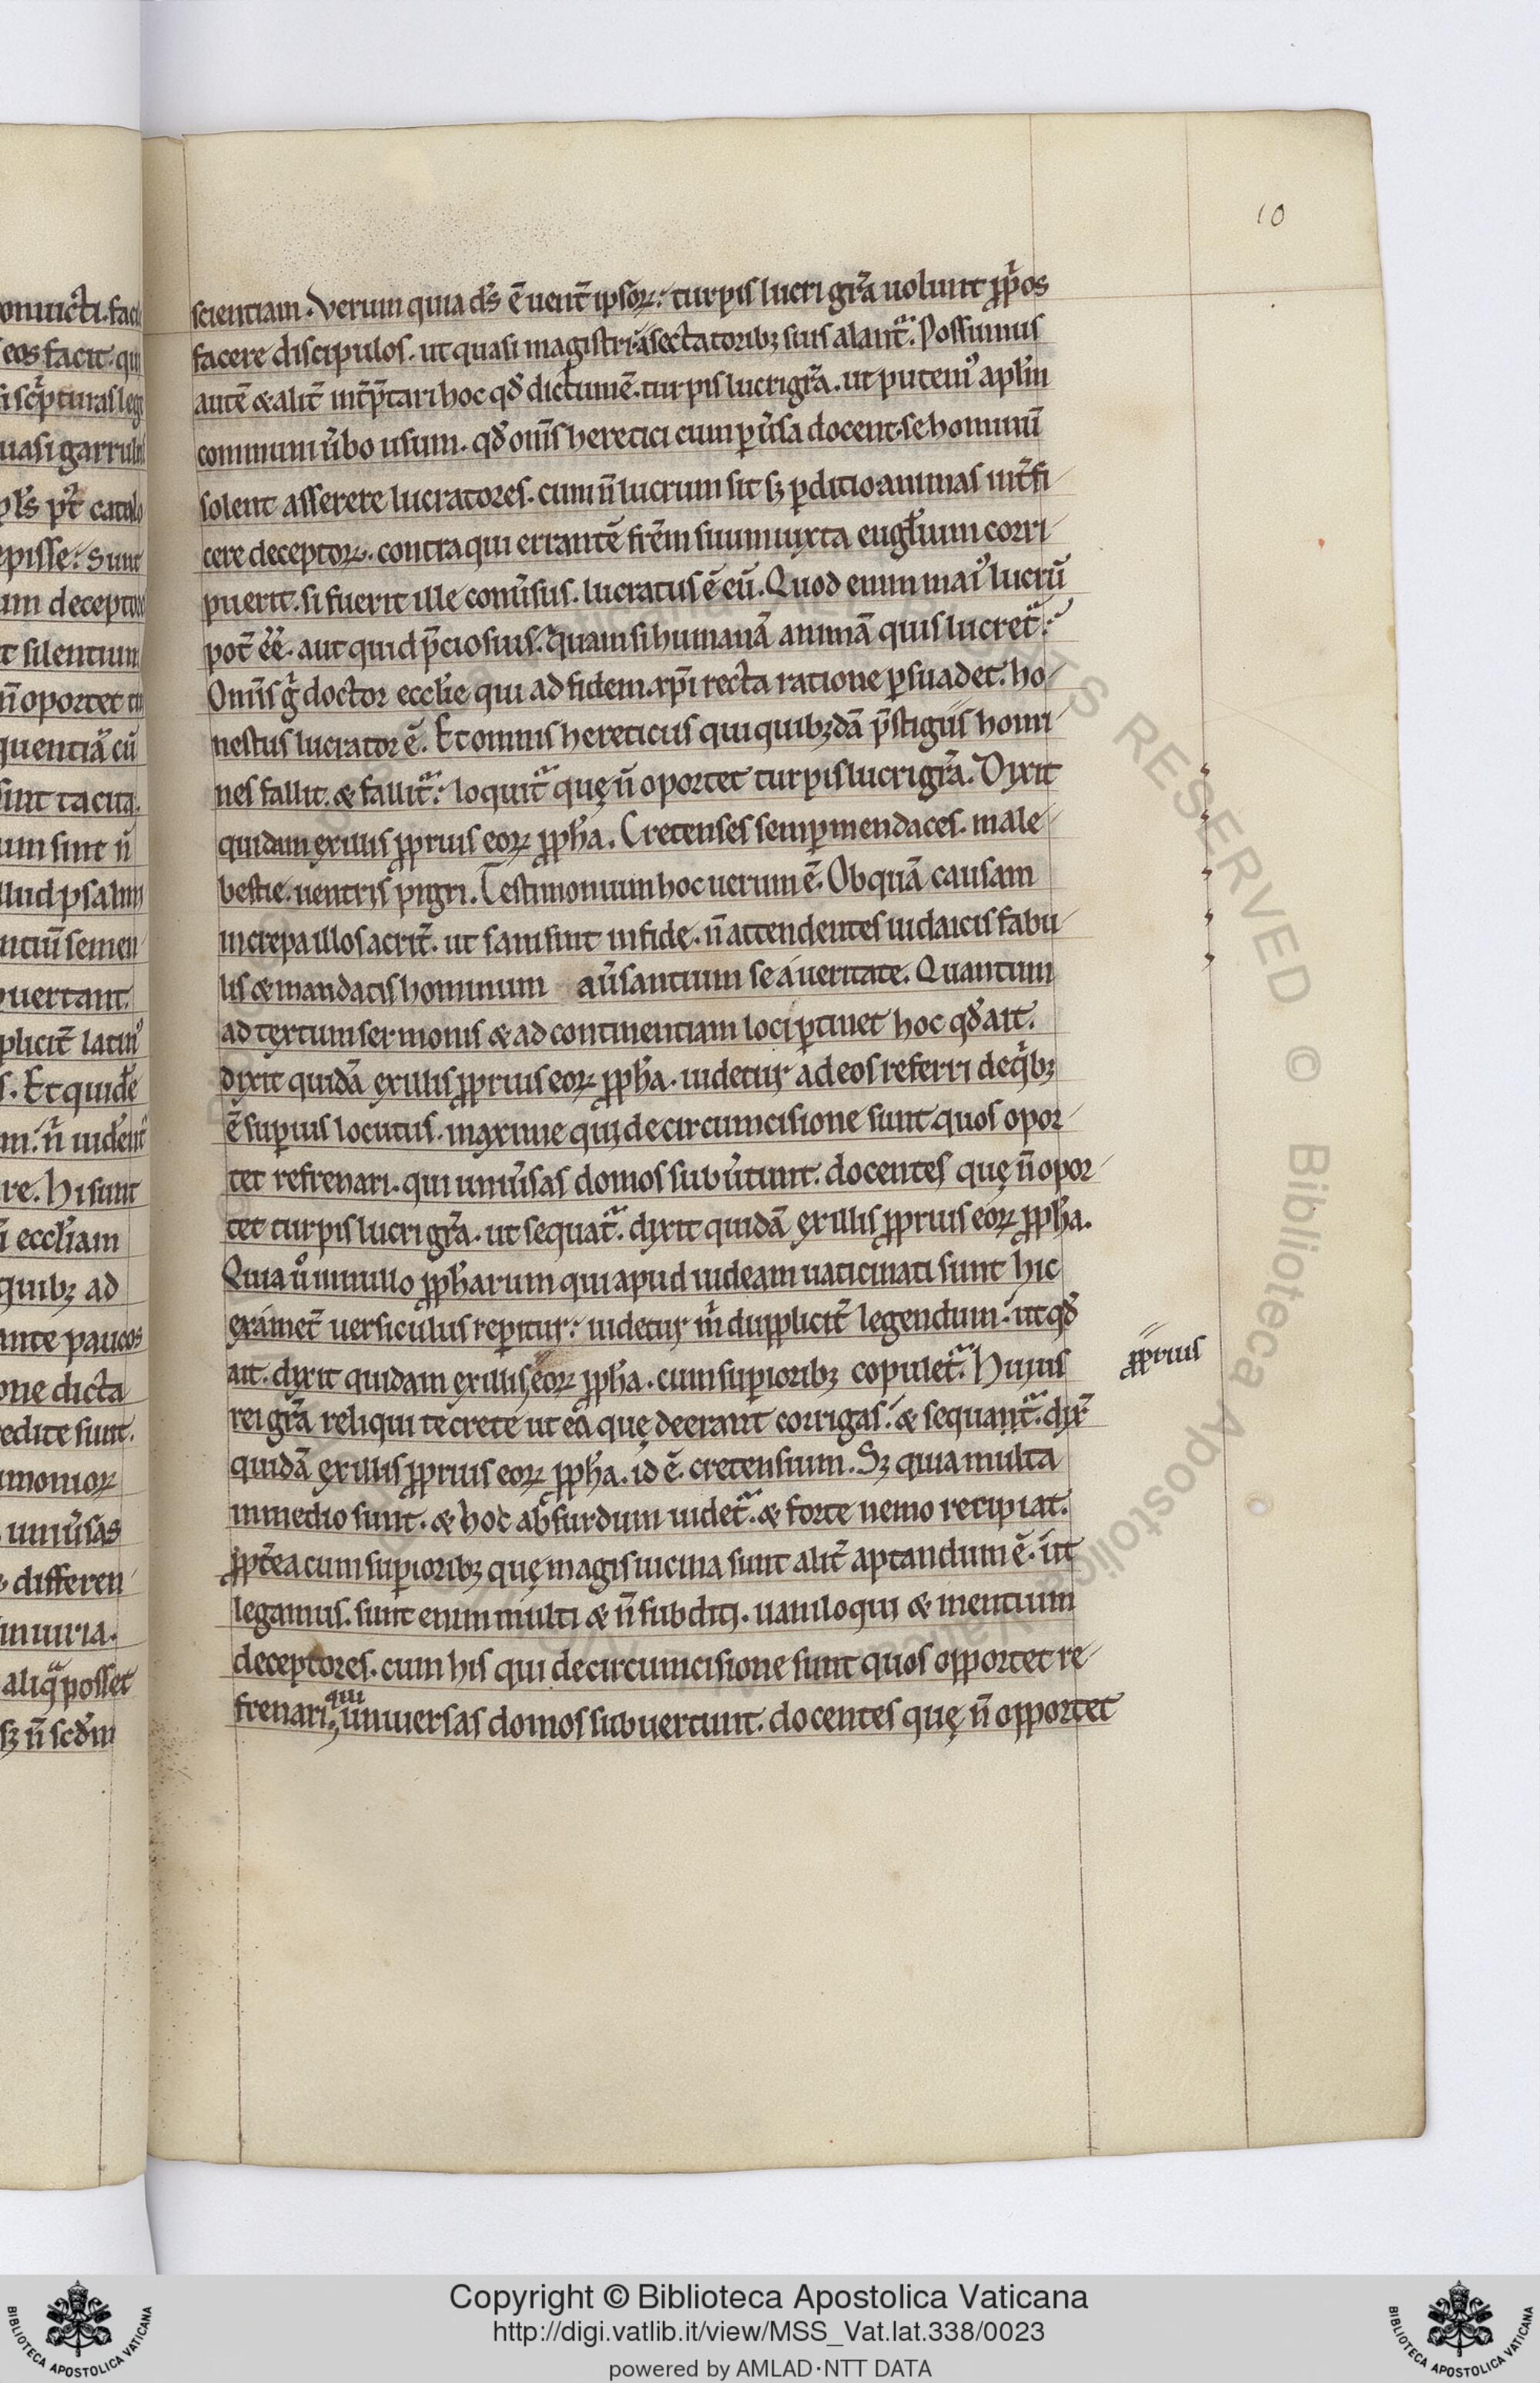 10
scientiam. Verum quia ds̄ ē uent̄ ipsoꝝ: turpis lucri gr̄a uolunt ꝓp̄os
facere discipulos. ut quasi magistri á sectatoribꝫ suis alant᷑. Possumus
autē & alit̄ int̄p̄tari hoc qđ dictum ē. turpis lucri gr̄a. ut putemꝰ apl̄m
communi ũbo usum. qđ om̄s heretici cum ꝑũsa docent. se hominū
solent asserere lucratores. cum n̄ lucrum sit sꝫ ꝑditio animas int̄fi-
cere deceptoꝝ. contra qui errantē fr̄em suum iuxta euḡlium corri-
puerit. si fuerit ille conũsus. lucratus ē eū. Quod enim maiꝰ lucrū
pot̄ ēē. aut quid p̄ciosius. quam si humanā animā quis lucret᷑.
Omn̄s g̊ doctor eccl̄ie qui ad fidem xp̄i recta ratione ꝑsuadet. ho-
nestus lucrator ē. Et omnis hereticus qui quibꝫdā p̄stigiis homi-
nes fallit. & fallit᷑: loquit᷑ quę n̄ oportet turpis lucri gr̄a. Dixit
quidam ex illis ꝓprius eoꝝ ꝓpħa. Cretenses semꝑ mendaces. male
bestie. uentris pigri. Testimonium hoc uerum ē. Ob quā causam
increpa illos acrit̄. ut sani sint in fide. n̄ attendentes iudaicis fabu-
lis & mandatis hominum aũsantium se á ueritate. Quantum
ad textum sermonis & ad continentiam loci ꝑtinet hoc qđ ait.
dixit quidā ex illis ꝓprius eoꝝ ꝓpħa. uidetur ad eos referri de qͥbꝫ
ē suꝑius locutus. maxime qui de circumcisione sunt quos opor-
tet refrenari. qui uniũsas domos subũtunt. docentes quę n̄ opor-
tet turpis lucri gr̄a. ut sequat᷑. dixit quidā ex illis ꝓprius eoꝝ ꝓpħa.
Quia ů in nullo ꝓpħarum qui apud iudeam uaticinati sunt hic
exámet̄ uersiculus reꝑitur: uidetur m̊ dupplicit̄ legendum. ut qđ
ait. dixit quidam ex illis eoꝝ ꝓpħa. cum suꝑioribꝫ copulet᷑. Huius
ꝓprius
rei gr̄a reliqui te crete ut ea quę deerant corrigas. & sequant᷑. dix̄
quidā ex illis ꝓprius eoꝝ ꝓpħa. id ē. cretensium. Sꝫ quia multa
in medio sunt. & hoc absurdum uidet᷑. & forte nemo recipiat.
ꝓpt̄ea cum suꝑioribꝫ quę magis uicina sunt alit̄ aptandum ē. ut
legamus. sunt enim multi & n̄ subditi. uaniloqui & mentium
deceptores. cum his qui de circumcisione sunt quos opportet re-
frenari. qui uniuersas domos subuertunt. docentes quę n̄ opportet
Copyright © Biblioteca Apostolica Vaticana
http://digi.vatlib.it/view/MSS_Vat.lat.338/0023
powered by AMLAD·NTT DATA